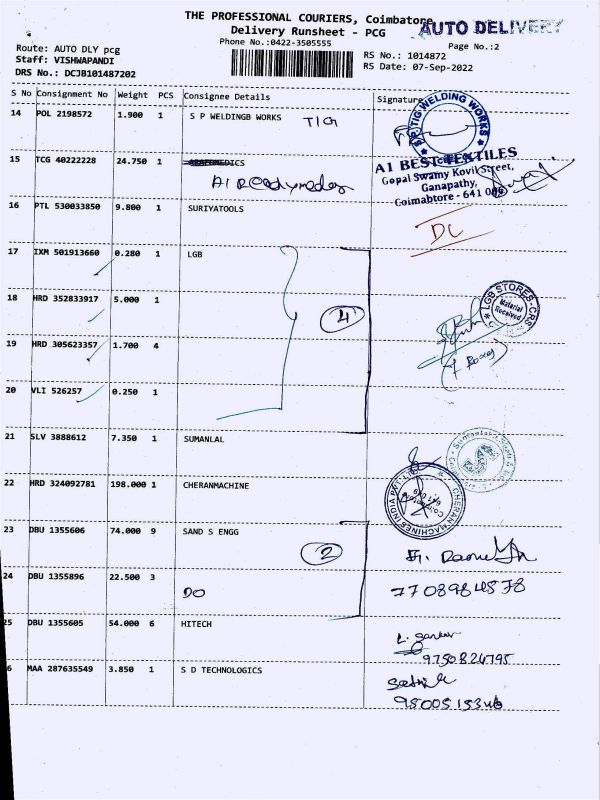 THE PROFESSIONAL COURIERS, Coimbatore
AUTO DELIVERY
Delivery Runsheet - PCG
Phone No.:0422-3505555
Page No.:2
Route: AUTO DLY pcg
Staff: VISHWAPANDI
DRS No.: DCJB101487202
RS No.: 1014872
RS Date: 07-Sep-2022
S No Consignment No Weight PCS Consignee Details Signature
14 POL 2198572 1.900 1 S P WELDINGB WORKS TIG
TIG WELDING WORKS
15 TCG 40222228 24.750 1
A1 Readymades
A1 BEST TEXTILES
Gopal Swamy Kovil Street,
Ganapathy,
Coimabtore - 641 006
16 PTL 530033850 9.800 1 SURIYATOOLS
DC
17 IXM 501913660 0.280 1 LGB
18 HRD 352833917 5.000 1
4
LGB STORES-CRS
Material
Received
19 HRD 305623357 1.700 4
20 VLI 526257 0.250 1
21 SLV 3888612 7.350 1 SUMANLAL
22 HRD 324092781 198.000 1 CHERANMACHINE
CHERAN MACHINES INDIA PVT
Coimbatore
23 DBU 1355606 74.000 9 SAND S ENGG
2
24 DBU 1355896 22.500 3
DO
7708984578
25 DBU 1355605 54.000 6 HITECH
9750824795
6 MAA 287635549 3.850 1 S D TECHNOLOGICS